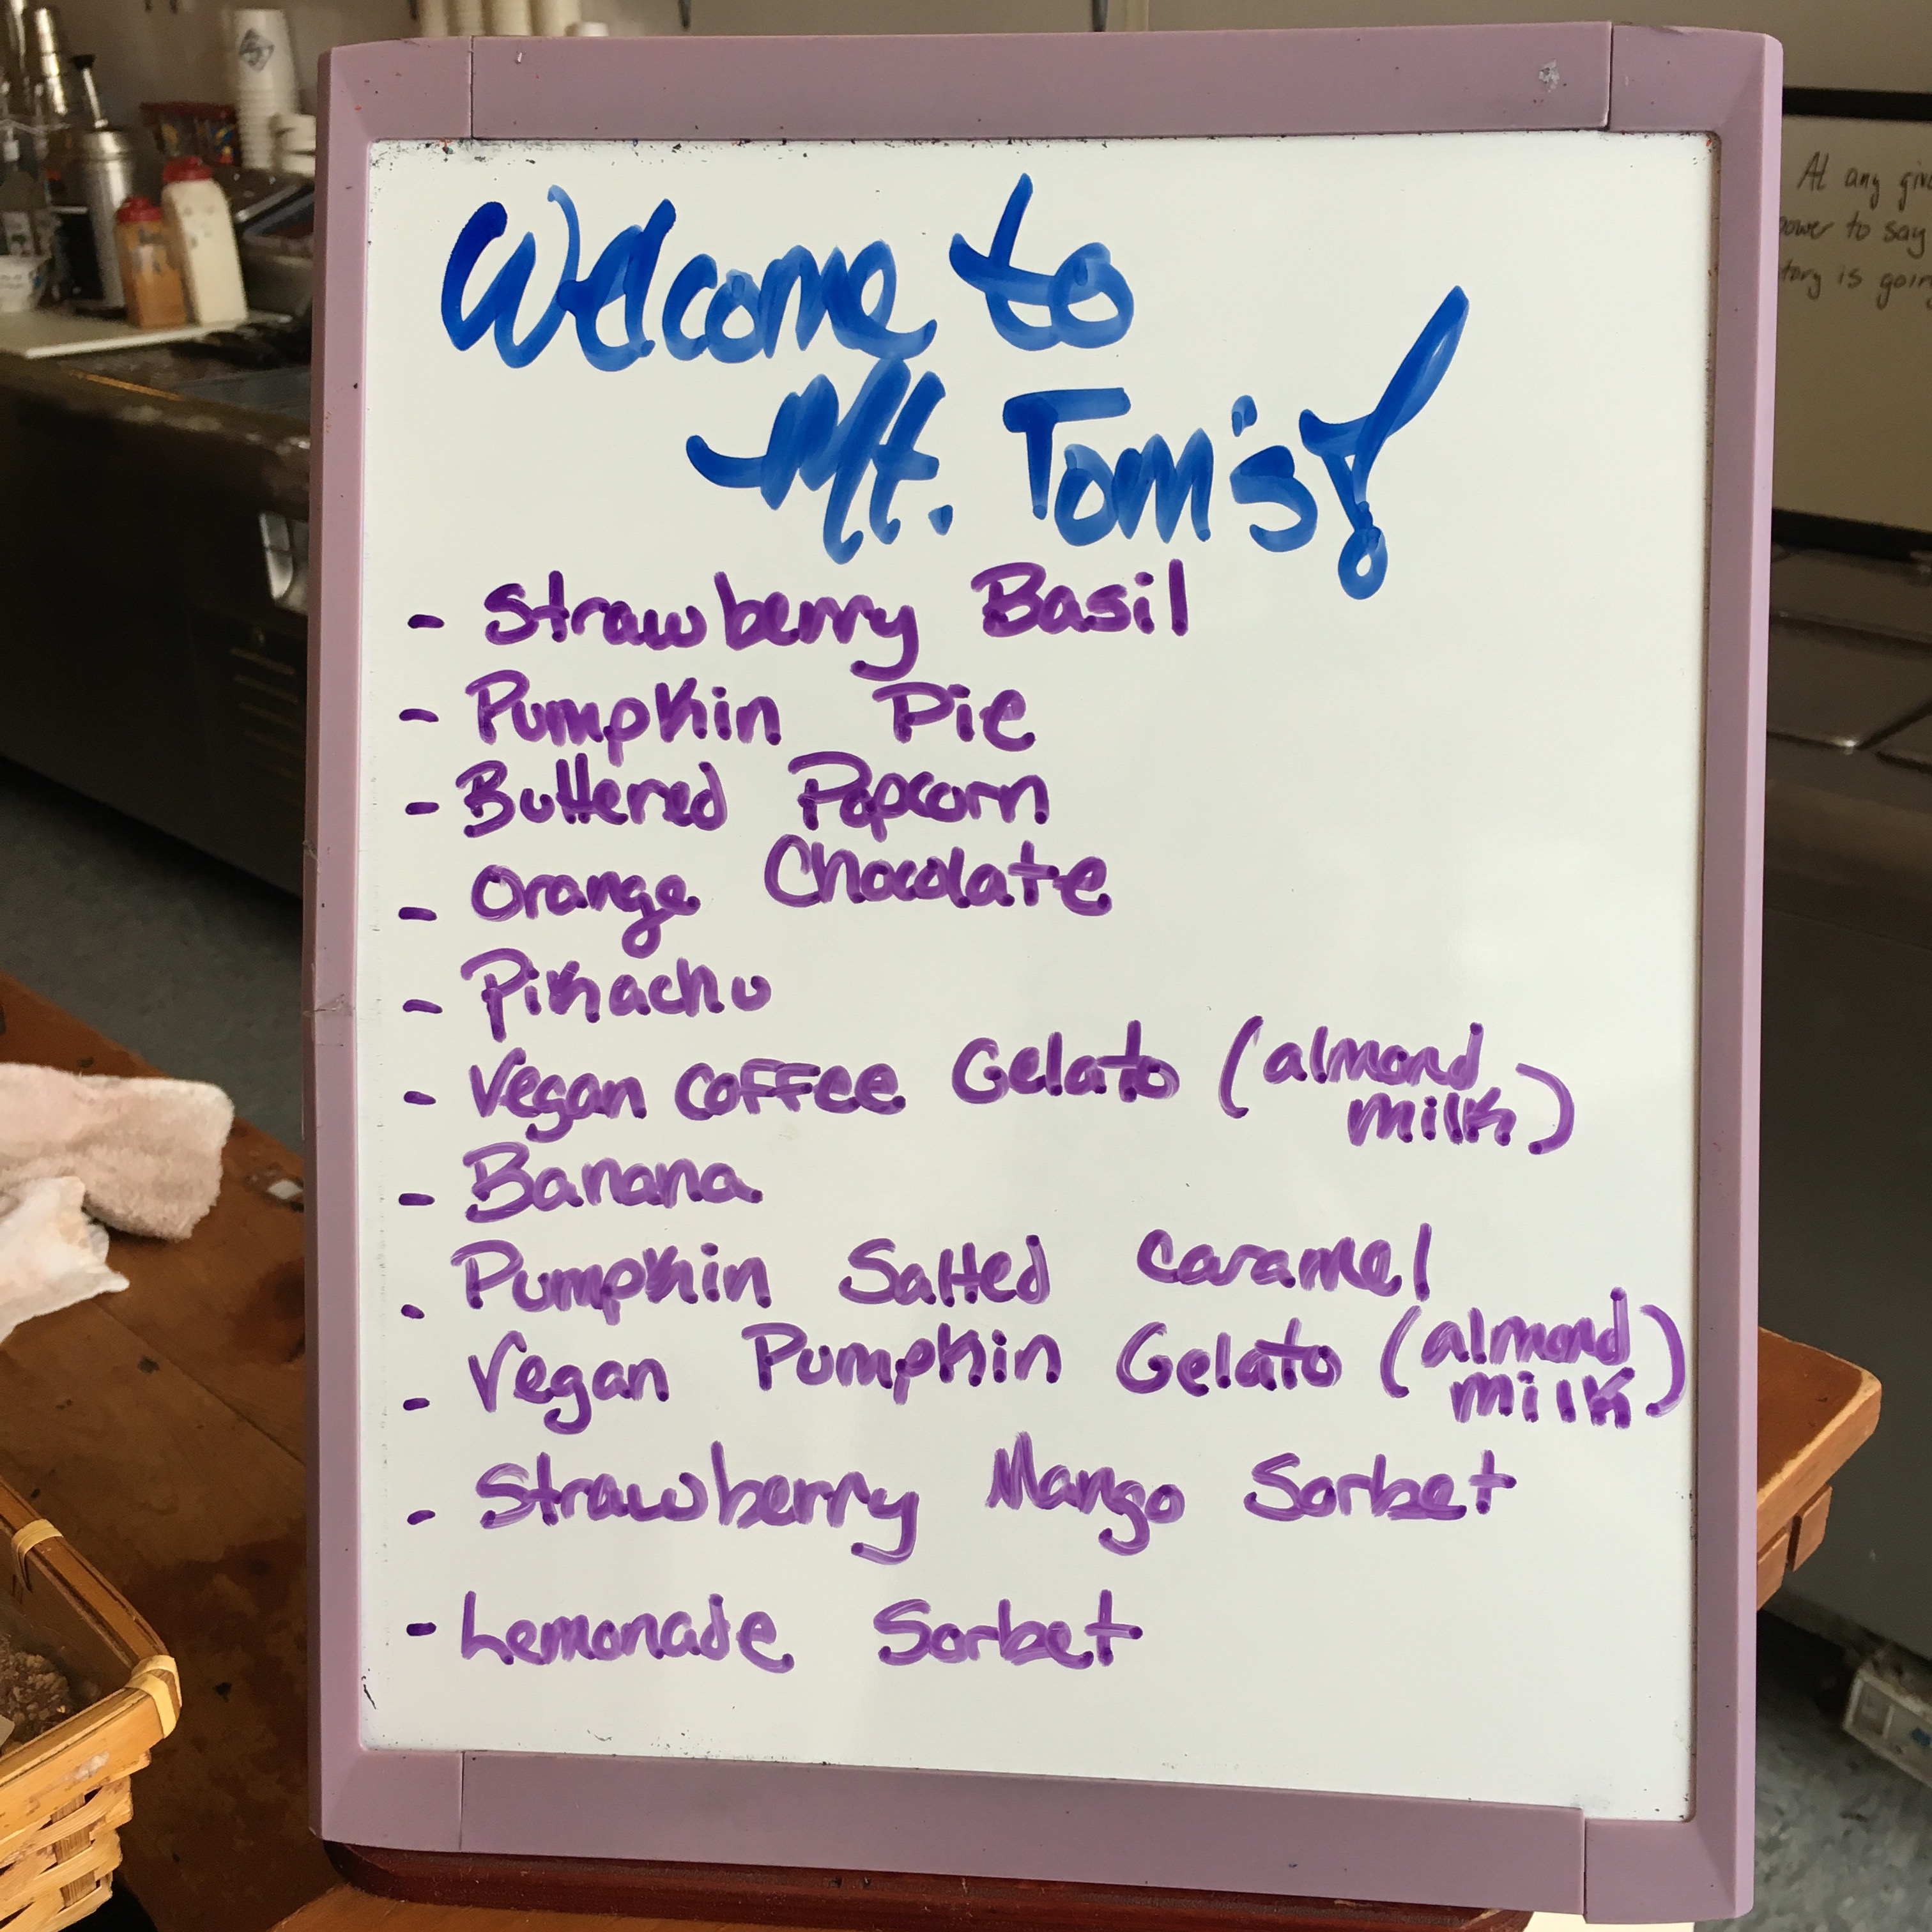 Welcome to
Mt. Tom's!
- Strawberry Basil
- Pumpkin Pie
- Buttered Popcorn
- Orange Chocolate
- Pikachu
- Vegan Coffee Gelato (almond
milk)
- Banana
- Pumpkin Salted Caramel
- Vegan Pumpkin Gelato (almond
milk)
- Strawberry Mango Sorbet
- Lemonade Sorbet
At any
power to say
is